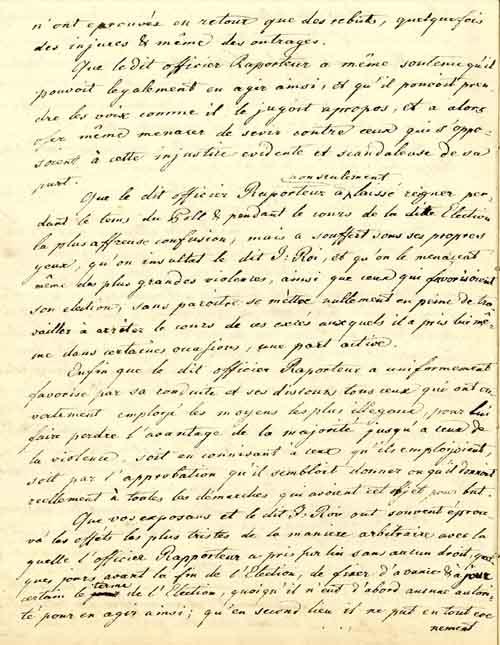 n'ont éprouvés en retour que des rebuts, quelquefois
des injures & même des outrages.
Que le dit officier Raporteur a même soutenu qu'il
pouvoit légalement en agir ainsi, et qu'il pouvoit pren-
dre les voix comme il le jugoit apropos, et a alors
osé même menacer de sevir contre ceux qui s'oppo-
soient à cette injustice evidente et scandaleuse de sa
part.
nonseulement
Que le dit officier Raporteur a laissé régner pen-
dant le tems du Poll & pendant le cours de la dite Election
la plus affreuse confusion, mais a souffert sous ses propres
yeux, qu'on insultat le dit J: Roi, et qu'on le menaçcat
même des plus grandes violences, ainsi que ceux qui favorisoient
son election, sans paroitre se mettre nullement en peine de tra
vailler à arrêter le cours de ces excés auxquels il a pris lui mê-
me dans certaines occasions, une part active.
Enfin que le dit officier Raporteur a uniformement
favorisé par sa conduite et ses discours tous ceux qui ont ou
vertement emploié les moyens les plus illégaux, pour lui
faire perdre l'avantage de la majorité jusqu'à ceux de
la violence, soit en connivant à ceux qu'ils emploioient,
soit par l'approbation qu'il sembloit donner ou qu'il donnoit
réellement à toutes les demarches qui avoient cet objet pour but.
Que vos exposans et le dit J: Roi ont souvent éprou
vé les effets les plus tristes de la maniere arbitraire avec la
quelle l'officier Rapporteur a pris sur lui sans aucun droit, quel
ques jours avant la fin de l'Election, de fixer d'avance & à jour
certain le terme de l'Election, quoiqu'il n'eut d'abord aucune autori-
té pour en agir ainsi; qu'en second lieu il ne put en tout eve
nement